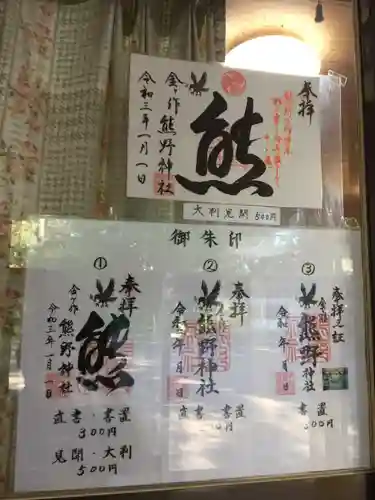 奉拝
熊
金ケ作 熊野神社
令和三年一月一日
大判見開 500円
御朱印
①
奉拝
熊
金ケ作 熊野神社
令和三年一月一日
直書・書置
300円
見開・大判
500円
②
奉拝
熊野神社
令和 年 月 日
直書・書置
300円
③
奉拝之証
金ケ作 熊野神社
令和 年 月 日
書置
100円